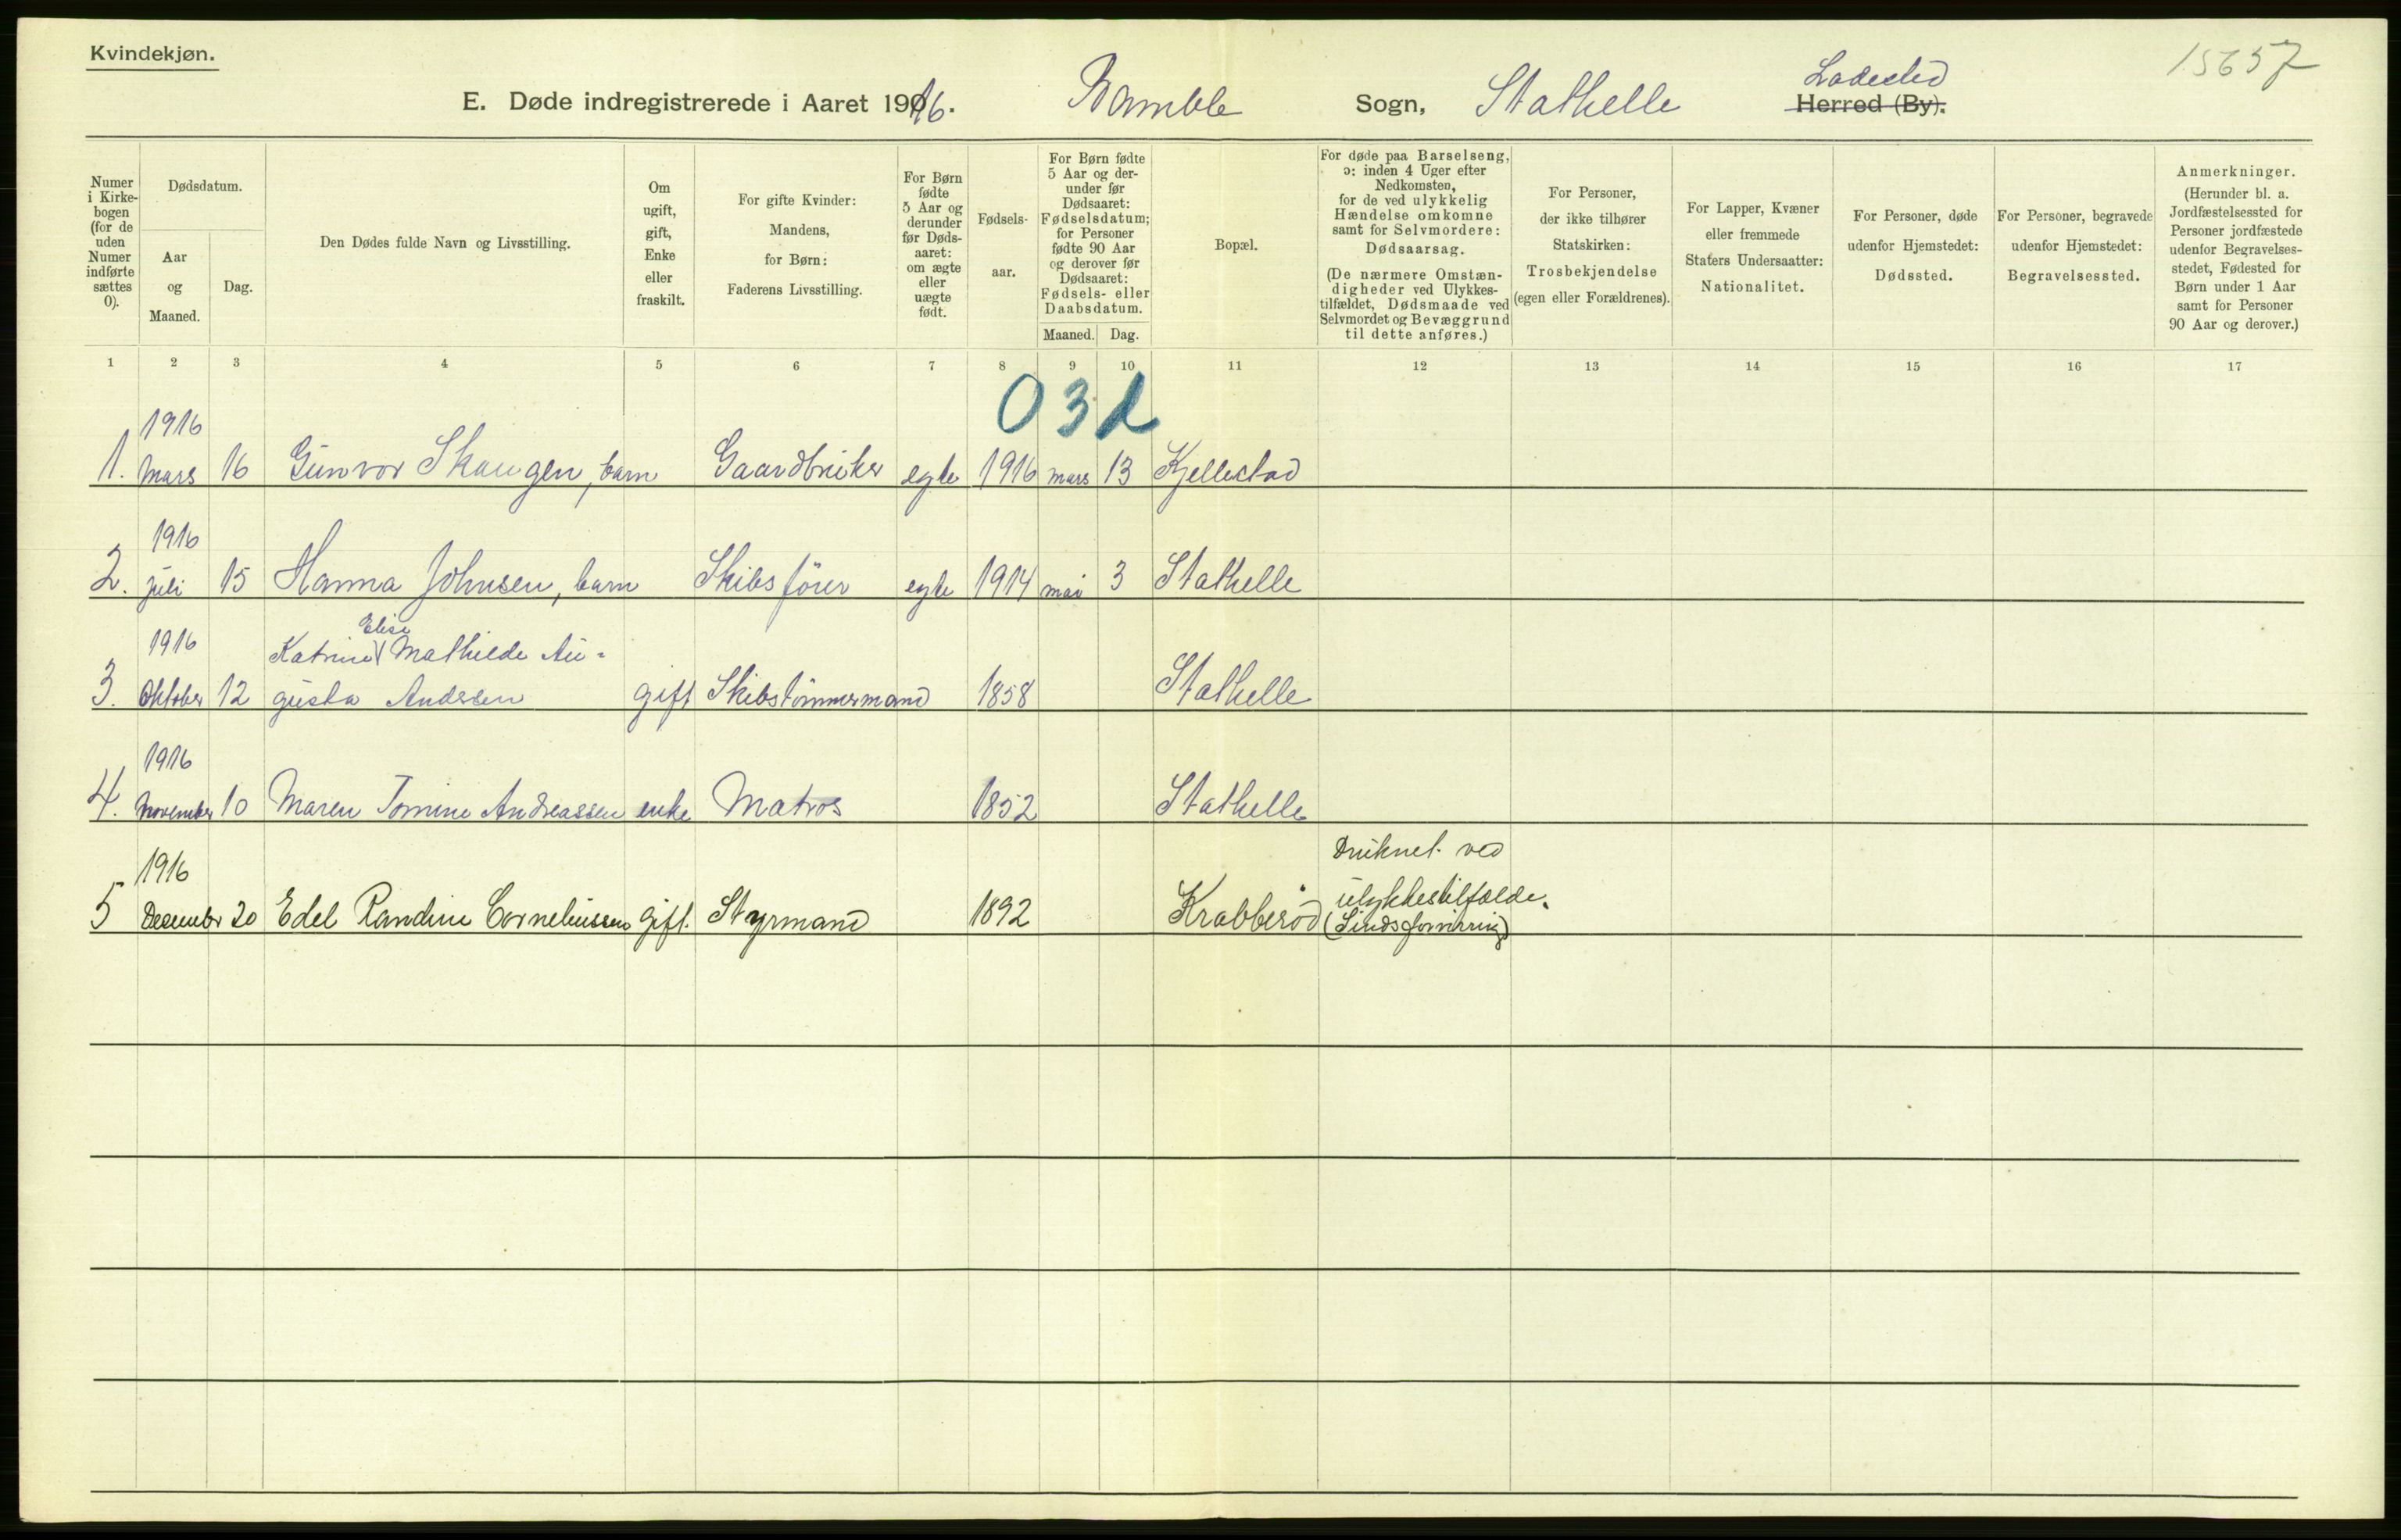 Kvindekjøn.
15657
E. Døde indregistrerede i Aaret 1916. Bamble Sogn, Stathelle Ladested Herred (By).
Numer i Kirkebogen (for de uden Numer indførte sættes 0).
Dødsdatum.
Aar og Maaned.
Dag.
Den Dødes fulde Navn og Livsstilling.
Om ugift, gift, Enke eller fraskilt.
For gifte Kvinder: Mandens, for Børn: Faderens Livsstilling.
For Børn fødte 5 Aar og derunder før Dødsaaret: om ægte eller uægte født.
Fødselsaar.
For Børn fødte 5 Aar og derunder før Dødsaaret: Fødselsdatum; for Personer fødte 90 Aar og derover før Dødsaaret: Fødsels- eller Daabsdatum.
Maaned. Dag.
Bopæl.
For døde paa Barselseng, ɔ: inden 4 Uger efter Nedkomsten, for de ved ulykkelig Hændelse omkomne samt for Selvmordere: Dødsaarsag.
(De nærmere Omstændigheder ved Ulykkestilfældet, Dødsmaade ved Selvmordet og Bevæggrund til dette anføres.)
For Personer, der ikke tilhører Statskirken: Trosbekjendelse (egen eller Forældrenes).
For Lapper, Kvæner eller fremmede Staters Undersaatter: Nationalitet.
For Personer, døde udenfor Hjemstedet: Dødssted.
For Personer, begravede udenfor Hjemstedet: Begravelsessted.
Anmerkninger.
(Herunder bl. a. Jordfæstelsessted for Personer jordfæstede udenfor Begravelsesstedet, Fødested for Børn under 1 Aar samt for Personer 90 Aar og derover.)
1 2 3 4 5 6 7 8 9 10 11 12 13 14 15 16 17
0 3 2
1916
1. Mars 16 Gunvor Skaugen, barn Gaardbruker egte 1916 mars 13 Kjellestad
1916
2. juli 15 Hanna Johnsen, barn Skibsfører egte 1914 mai 3 Stathelle
1916 Katrine Elise Mathilde Au-
3. Oktober 12 gusta Andersen gift Skibstømmermand 1858 Stathelle
1916
4. November 10 Maren Tomine Andreassen enke Matros 1852 Stathelle
1916 Druknet ved
ulykkestilfælde.
5 December 20 Edel Randine Corneliussen gift. Styrmand 1892 Krabberød (Sindsforvirring)